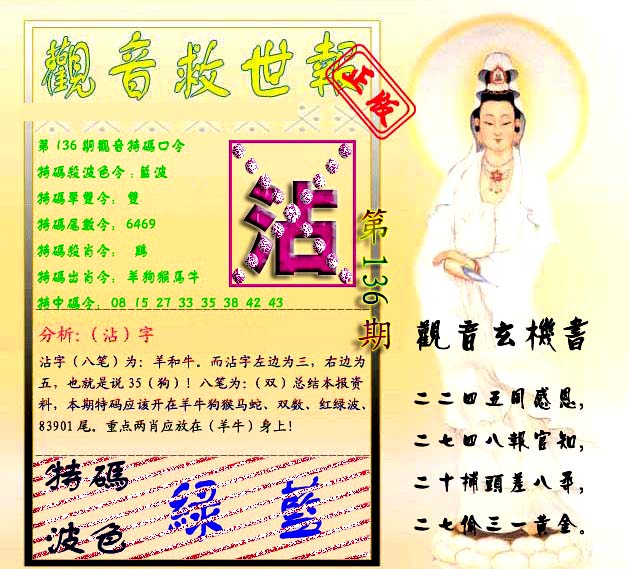 觀音救世報
正版
第136期觀音特碼口令
特碼殺波色令:藍波
特碼單雙令: 雙
特碼尾數令: 6469
特碼殺肖令: 鷄
特碼出肖令: 羊狗猴馬牛
特中碼令: 08 15 27 33 35 38 42 43
沾
第136期
分析:(沾)字
沾字(八笔)为:羊和牛。而沾字左边为三,右边为
五,也就是说35(狗)!八笔为:(双)总结本报资
料,本期特码应该开在羊牛狗猴马蛇、双数、红绿波、
83901尾。重点两肖应放在(羊牛)身上!
特碼
波色
綠 藍
觀音玄機書
二二四五同感恩,
二七四八報官知,
二十捕頭差八尋,
二七偷三一黃金。